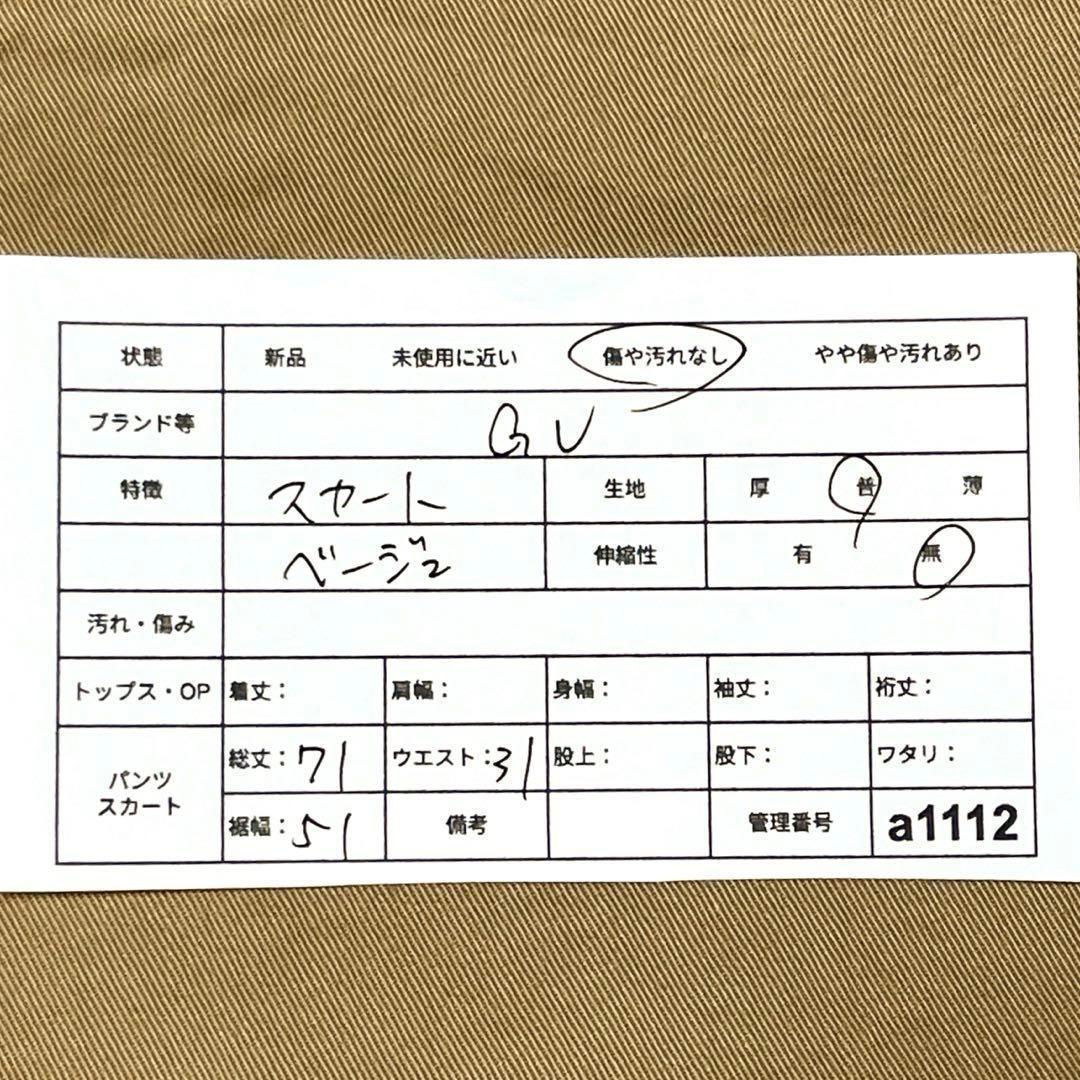 状態 新品 未使用に近い 傷や汚れなし やや傷や汚れあり
ブランド等 GU
特徴 スカート 生地 厚 普 薄
ベージュ 伸縮性 有 無
汚れ・傷み
トップス・OP 着丈： 肩幅： 身幅： 袖丈： 裄丈：
パンツ スカート 総丈：71 ウエスト：31 股上： 股下： ワタリ：
裾幅：51 備考 管理番号 a1112